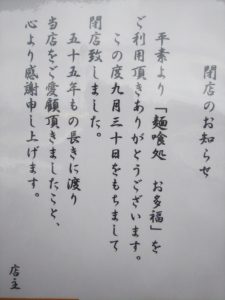 閉店のお知らせ
平素より「麺喰処　お多福」を
ご利用頂きありがとうございます。
この度九月三十日をもちまして
閉店致しました。
五十五年もの長きに渡り
当店をご愛顧頂きましたこと、
心より感謝申し上げます。
店主